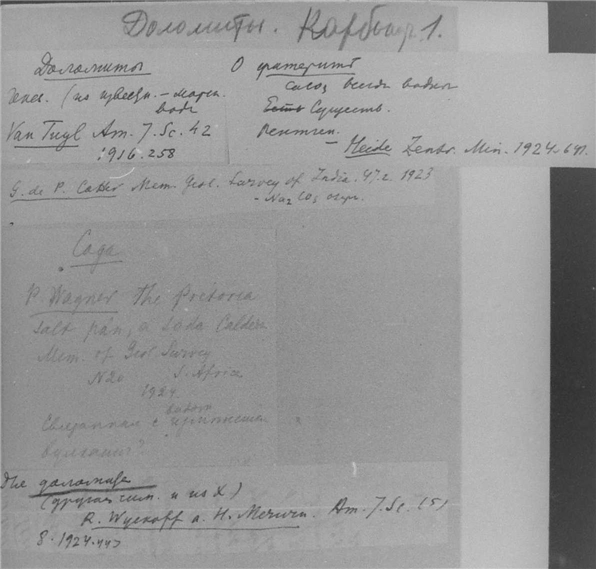 Доломиты. Карбонат. 1.
Доломиты
генез. (из известн. – магн.
воды
Van Tuyl Am. J. Sc. 42
1916. 258
О
CaCO3 всегда водной
Есть Существ.
Рентген.
– Heide Zentr. Min. 1924. 641.
G. de P. Cotter Mem. Geol. Survey of India. 47.2. 1923
– Na2CO3 озер.
Сода
P. Wagner The Pretoria
salt pan, a soda Caldera
Mem. of Geol. Survey
N20 S. Africa
1924
водой
Связанная с
вулканич?
The доломит
(другая сим. и их X)
R. Wyckoff a. H. Merwin. Am. J. Sc. (5)
8. 1924. 447